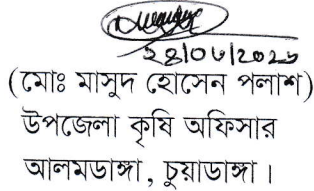 ২৪/০৮/২০২৩
(মোঃ মাসুদ হোসেন পলাশ)
উপজেলা কৃষি অফিসার
আলমডাঙ্গা, চুয়াডাঙ্গা।